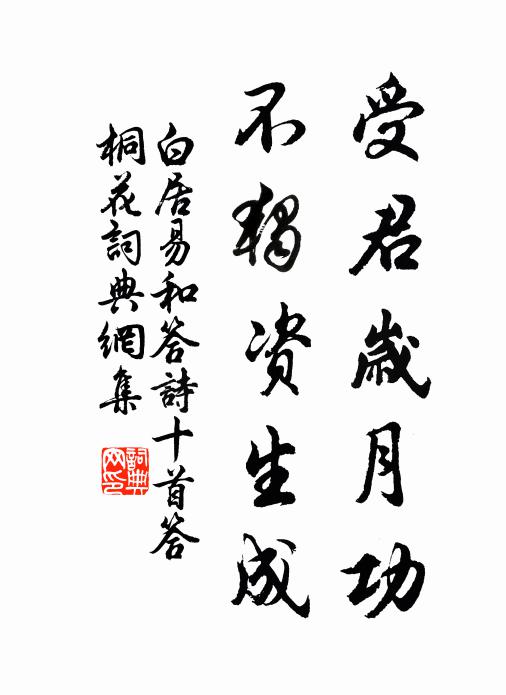 受君歲月功
不獨資生成
白居易和答詩十首答
桐花詞典網集
詞典
网印